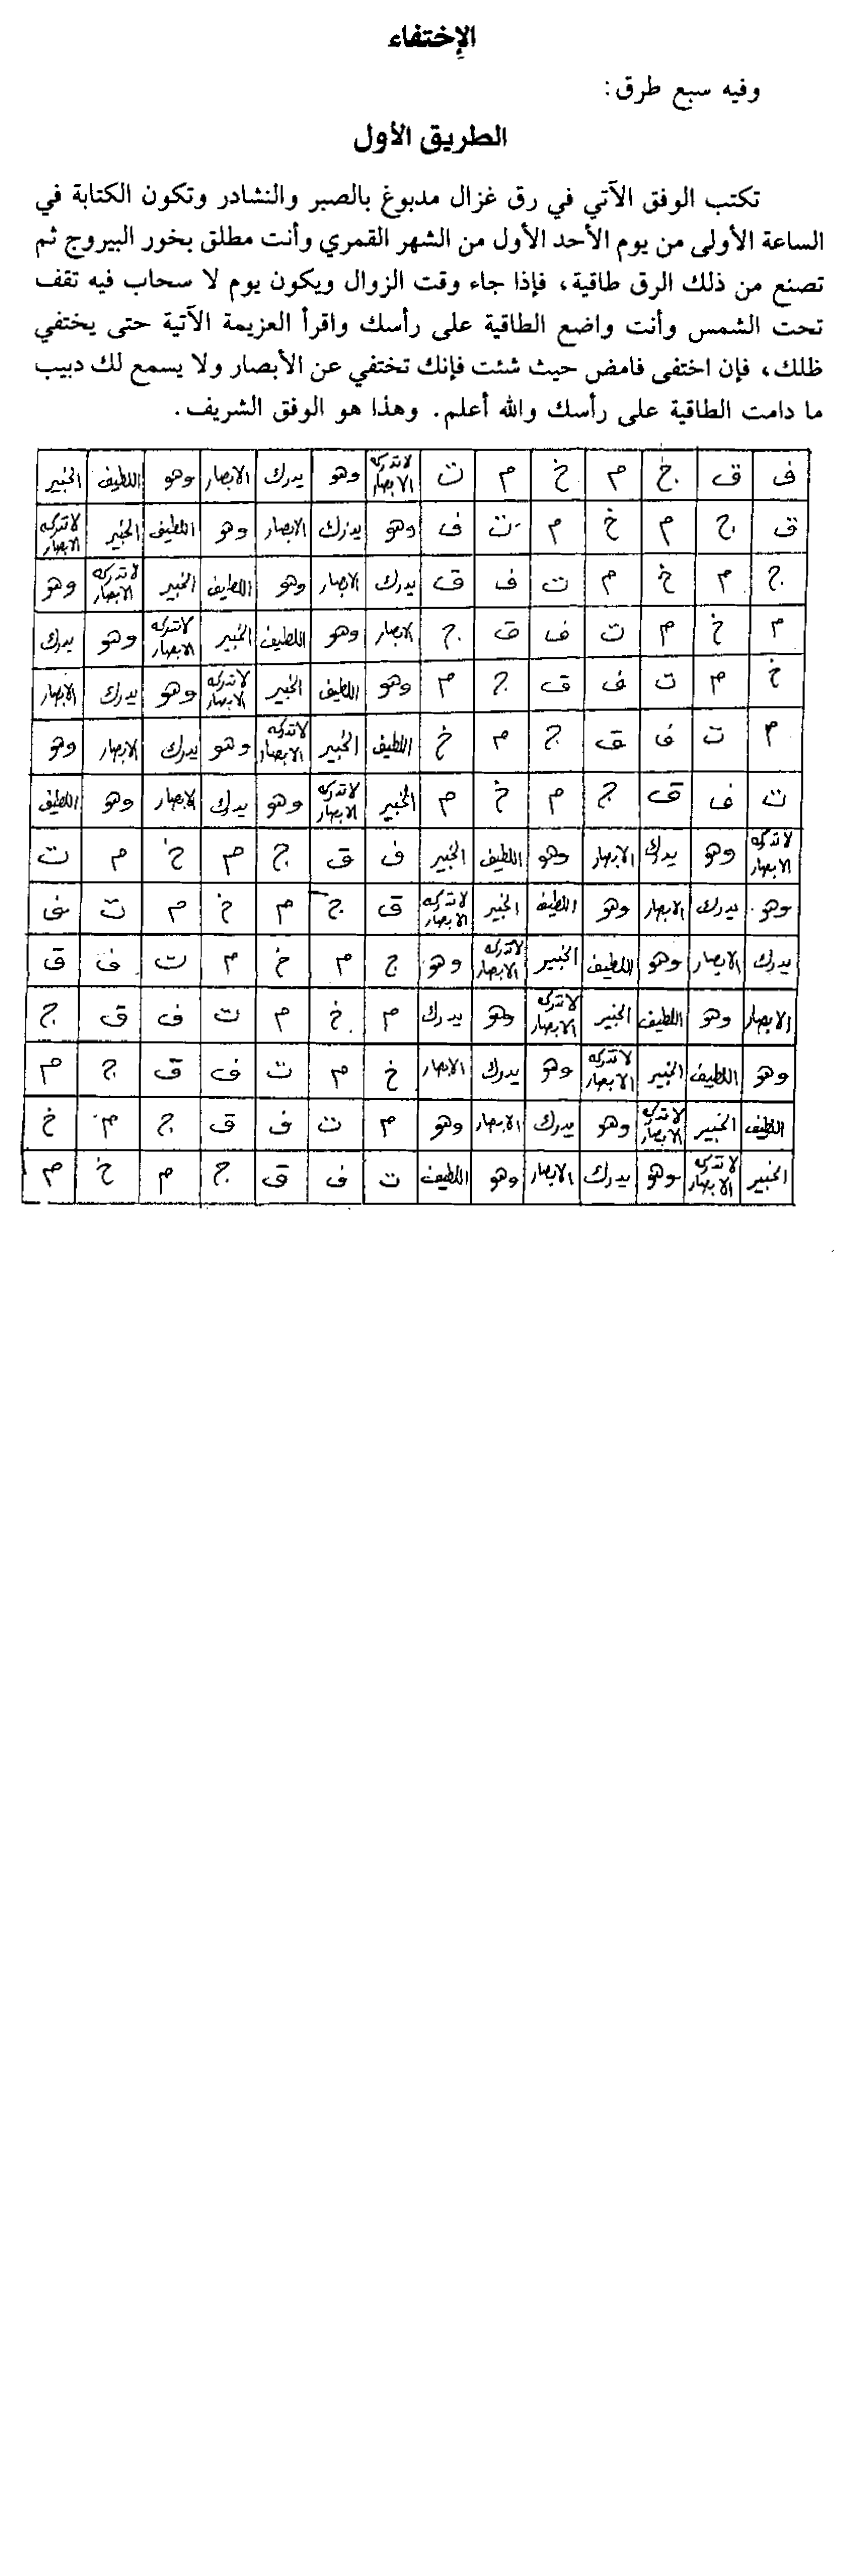 الإختفاء
وفيه سبع طرق:
الطريق الأول
تكتب الوفق الآتي في رق غزال مدبوغ بالصبر والنشادر وتكون الكتابة في
الساعة الأولى من يوم الأحد الأول من الشهر القمري وأنت مطلق بخور البيروج ثم
تصنع من ذلك الرق طاقية، فإذا جاء وقت الزوال ويكون يوم لا سحاب فيه تقف
تحت الشمس وأنت واضع الطاقية على رأسك واقرأ العزيمة الآتية حتى يختفي
ظلك، فإن اختفى فامض حيث شئت فإنك تختفي عن الأبصار ولا يسمع لك دبيب
ما دامت الطاقية على رأسك والله أعلم. وهذا هو الوفق الشريف.
ف ق ج م خ م ت لا تدركه الابصار وهو يدرك الابصار وهو اللطيف الخبير
ق ج م خ م ت ف وهو يدرك الابصار وهو اللطيف الخبير لا تدركه الابصار
ج م خ م ت ف ق يدرك الابصار وهو اللطيف الخبير لا تدركه الابصار وهو
م خ م ت ف ق ج الابصار وهو اللطيف الخبير لا تدركه الابصار وهو يدرك
خ م ت ف ق ج م وهو اللطيف الخبير لا تدركه الابصار وهو يدرك الابصار
م ت ف ق ج م خ اللطيف الخبير لا تدركه الابصار وهو يدرك الابصار وهو
ت ف ق ج م خ م الخبير لا تدركه الابصار وهو يدرك الابصار وهو اللطيف
لا تدركه الابصار وهو يدرك الابصار وهو اللطيف الخبير ف ق ج م خ م ت
وهو يدرك الابصار وهو اللطيف الخبير لا تدركه الابصار ق ج م خ م ت ف
يدرك الابصار وهو اللطيف الخبير لا تدركه الابصار وهو ج م خ م ت ف ق
الابصار وهو اللطيف الخبير لا تدركه الابصار وهو يدرك م خ م ت ف ق ج
وهو اللطيف الخبير لا تدركه الابصار وهو يدرك الابصار خ م ت ف ق ج م
اللطيف الخبير لا تدركه الابصار وهو يدرك الابصار وهو م ت ف ق ج م خ
الخبير لا تدركه الابصار وهو يدرك الابصار وهو اللطيف ت ف ق ج م خ م